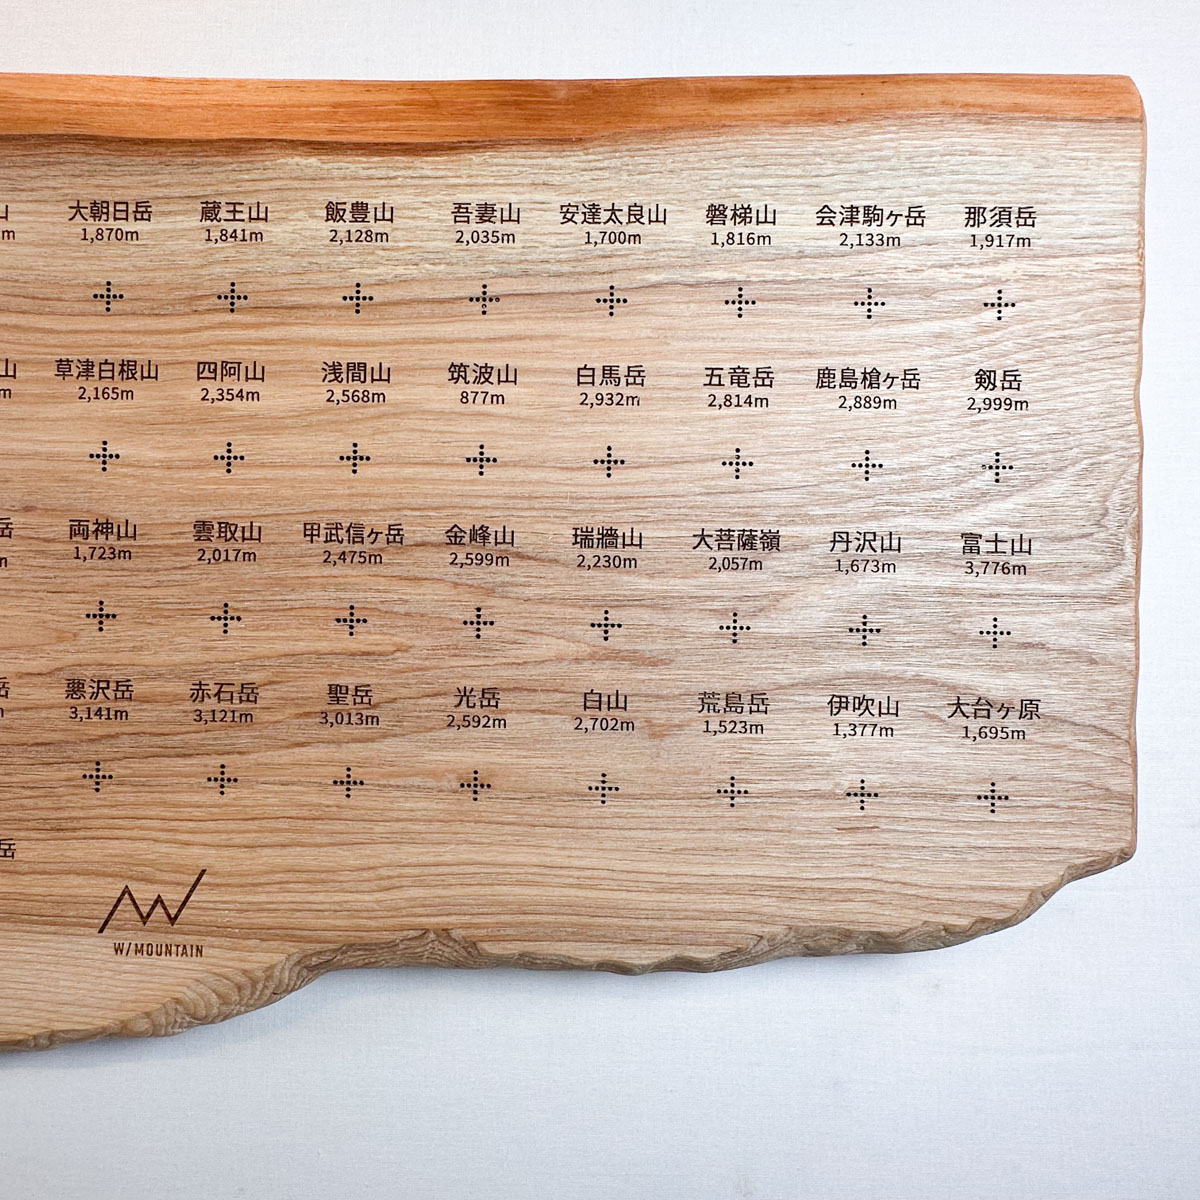 山 大朝日岳 蔵王山 飯豊山 吾妻山 安達太良山 磐梯山 会津駒ヶ岳 那須岳
m 1,870m 1,841m 2,128m 2,035m 1,700m 1,816m 2,133m 1,917m
山 草津白根山 四阿山 浅間山 筑波山 白馬岳 五竜岳 鹿島槍ヶ岳 剱岳
m 2,165m 2,354m 2,568m 877m 2,932m 2,814m 2,889m 2,999m
岳 両神山 雲取山 甲武信ヶ岳 金峰山 瑞牆山 大菩薩嶺 丹沢山 富士山
m 1,723m 2,017m 2,475m 2,599m 2,230m 2,057m 1,673m 3,776m
岳 悪沢岳 赤石岳 聖岳 光岳 白山 荒島岳 伊吹山 大台ヶ原
m 3,141m 3,121m 3,013m 2,592m 2,702m 1,523m 1,377m 1,695m
岳
W/MOUNTAIN